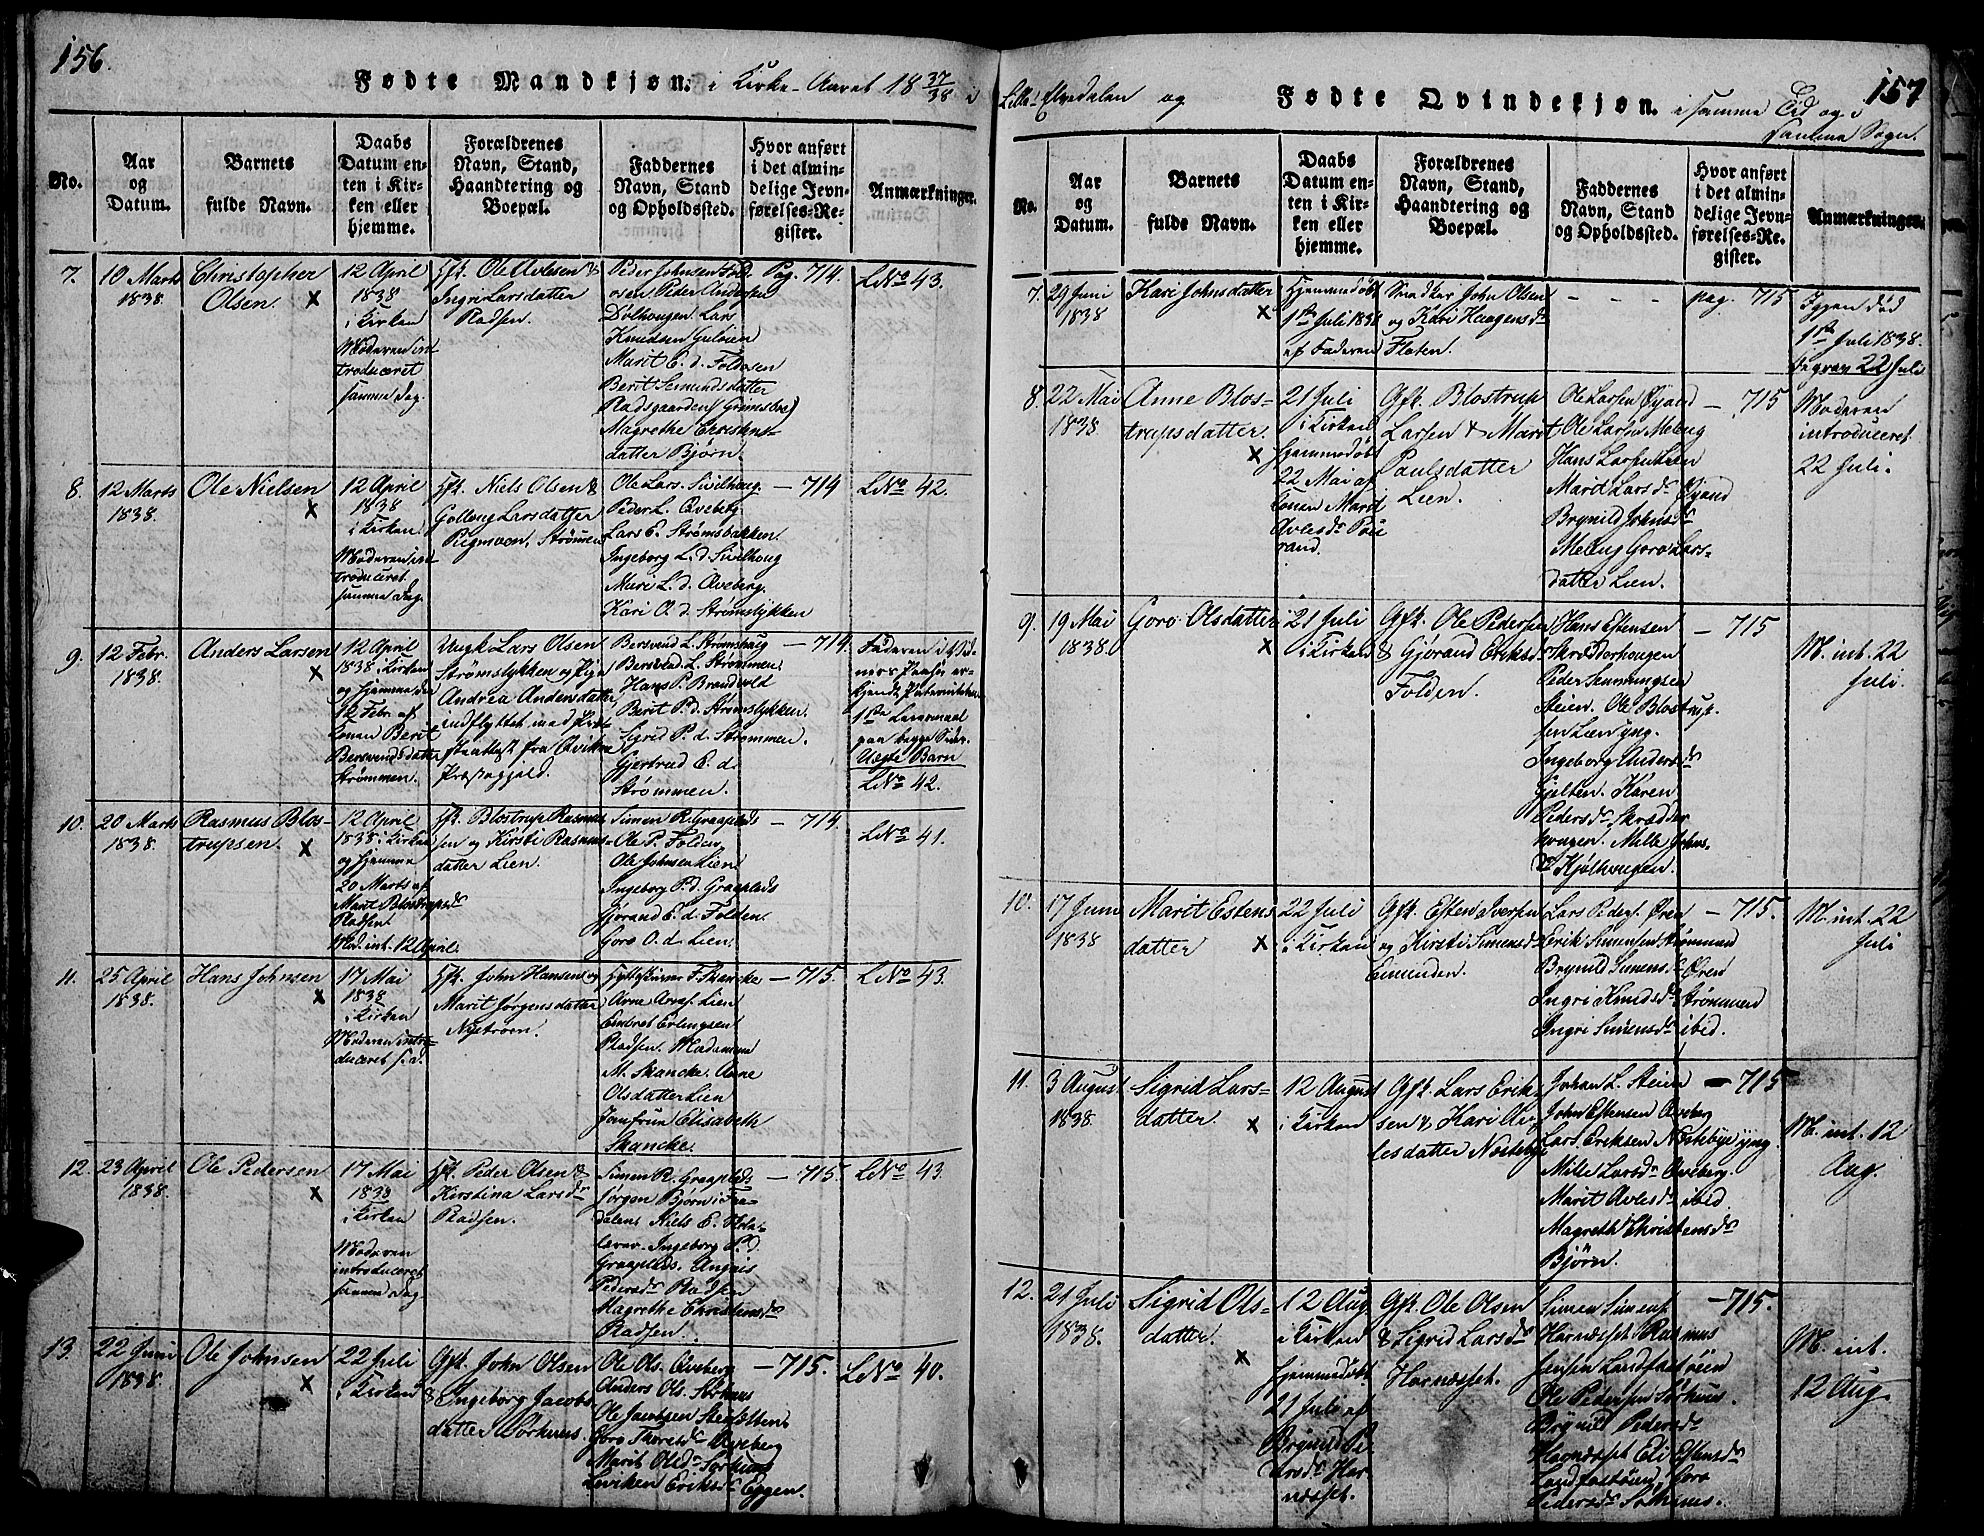 156.
Fødte Mandkjøn. i Kirke-Aaret 18 37/38 i
No.
Aar
og
Datum.
Barnets
fulde Navn.
Daabs
Datum en-
ten i Kir-
ken eller
hjemme.
Forældrenes
Navn, Stand,
Haandtering og
Boepæl.
Faddernes
Navn, Stand
og Opholdssted.
Hvor anført
i det almin-
delige Jevn-
førelses-Re-
gister.
Anmærkninger.
7.
10 Marts
1838.
Christopher
Olsen. x
12 April
1838
i Kirken
Moderen in
troduceret
samme Dag.
Gft. Ole Avlesen &
Ingri Larsdatter
Radsen.
Peder Johnsen
Peder Andersen
Lars
Knudsen
Marit E. d. Foldosen
Berit Semundsdatter
Magrethe Christens-
datter Bjørn.
Pag. 714.
L No 43.
8.
12 Marts
1838.
Ole Nielsen
x
12 April
1838
i Kirken
Moderen in
troduceret
samme Dag.
Gft. Niels Olsen &
Golloug Larsdatter
Strømmen
Ole Lars. Sivilhaug.
Peder L. Qveberg.
Lars E. Strømsbakken.
Ingeborg L. d. Sivilhoug
Mari L. d. Qveberg.
Kari O. d. Strømslykken
— 714
L No 42.
9.
12 Febr.
1838.
Anders Larsen
x
12 April
1838 i Kirken
og hjemme den
12 Febr. af
Konen Berit
Bersvendsdatter
Strømmen.
Ungk. Lars Olsen
Strømslykken og Pige
Andrea Andersdatter
indflyttet med
fra Qvikne
Præstegjeld.
Bersvend L. Strømshaug
Bersvend L. Strømmen.
Hans P. Brandvold
Berit P. d. Strømslykken.
Sigrid P. d. Strømmen.
Gjertrud E. d.
Strømmen.
— 714.
1ste Leiermaal
paa begge Sider.
Uægte Barn
L No 42.
10.
20 Marts
1838.
Rasmus Blos-
trupsen. x
12 April
1838 i Kirken
og hjemme
20 Marts af
Marit Blostrupsdr
Radsen.
Mod. int. 12 April.
Gft. Blostrup Rasmus
sen og Kirsti Rasmus-
datter Lien.
Simen R. Graaplads
Ole P. Folden
Ole Johnsen Lien.
Ingeborg P. d. Graaplads
Gjorand E. d. Folden.
Goro O. d. Lien.
— 714.
L No 41.
11.
25 April
1838.
Hans Johnsen
x
17 Mai
1838
i Kirken
Moderen intro-
duceret s. d.
Gft. John Hansen og
Marit Jørgensdatter
Nystrøen.
F. Skancke
Arne Lien
Embret Erlingsen
Radsen. Madamme
M. Skancke. Anne
Olsdatter Lien
Jomfrue Elisabeth
Skancke.
— 715.
L No 43.
12.
23 April
1838.
Ole Pedersen
x
17 Mai
1838
i Kirken
Moderen
introduceret
samme Dag.
Gft. Peder Olsen &
Kirstina Larsdr
Radsen.
Simen R. Graaplads
Jørgen Bjørn i
dalen. Niels E. Skole-
lærer. Ingeborg P. d.
Graaplads.
Pedersdr Radsen
Magrethe Christensdr
Radsen.
— 715.
L No 43.
13.
22 Juni
1838.
Ole Johnsen
x
22 Juli
i Kirken
Gft. John Olsen
& Ingeborg Jacobs
datter Sorhuus.
Ole Ols. Qveberg
Anders Ols. Sorhuus
Ole Jacobsen
Goro Thoresdr Qveberg
Marit Olsd. Sorhuus
Eriksdr Eggen.
— 715.
L No 40.
157
Lille-Elvedalen og Fødte Qvindekjøn. i samme Tid og i
samme Sogn.
No.
Aar
og
Datum.
Barnets
fulde Navn.
Daabs
Datum en-
ten i Kir-
ken eller
hjemme.
Forældrenes
Navn, Stand,
Haandtering og
Boepæl.
Faddernes
Navn, Stand
og Opholdssted.
Hvor anført
i det almin-
delige Jevn-
førelses-Re-
gister.
Anmærkninger.
7.
29 Juni
1838
Kari Johnsdatter
x
Hjemmedøbt
1ste Juli 1838
af Faderen
John Olsen
og Kari Haagensdr
Floten.
- - - -
pag. 715
Igjen død
1ste Juli 1838.
begrav. 22 Juli
8.
22 Mai
1838.
Anne Blos-
trupsdatter.
x
21 Juli
i Kirken
hjemmedøbt
22 Mai af
Konen Marit
Avlesdr
Gft. Blostrup
Larsen & Marit
Paulsdatter
Lien.
Ole Larsen Øyand
Ole Larsen Meloug
Hans Larsen Lien
Marit Larsdr Øyand
Brynild Johnsdr
Meloug Goro Lars-
datter Lien.
— 715
Moderen
introduceret
22 Juli.
9.
19 Mai
1838.
Goro Olsdatter
x
21 Juli
i Kirken
Gft. Ole Pedersen
& Gjorand Eriksdr
Folden.
Hans Estensen
Skrædderhougen
Peder Simmingsen
Steien. Ole Blostrup-
sen Lien yng.
Ingeborg Andersdr
Gjelten. Karen
Pedersdr Skrædder
hougen. Mille Johns-
dr Kjølhougen.
— 715
M. int. 22
Juli.
10.
17 Juni
1838
Marit Estens
datter x
22 Juli
i Kirken
Gft. Esten Iversen
og Kirsti Simensdr
Eimunden.
Lars Peders. Øren
Erik Simensen Strømmen
Brynild Simensdr Øren
Ingri Knudsdr Strømmen
Ingri Simensdr ibid.
— 715.
M. int. 22
Juli
11.
3 August
1838.
Sigrid Lars-
datter. x
12 August
i Kirken
Gft. Lars Erik-
sen & Kari Av-
lesdatter Nosteby
Johan L. Steien
John Estensen Qveberg
Lars Eriksen Nostebye yng.
Mille Larsdr Qveberg.
Marit Avlesdr ibid
Magreth Christensdr
Bjørn.
— 715
M. int. 12
Aug.
12.
21 Juli
1838.
Sigrid Ols-
datter.
x
12 Aug.
i Kirken
hjemmedøbt
21 Juli af
Brynild Pe
dersdr Hor
nesset.
Gft. Ole Olsen
& Sigrid Larsdr
Hornesset.
Simen Simens.
Hornesset Rasmus
Jensen Landfastøien
Ole Pedersen Sorhuus.
Brynild Pedersdr
Hornesset Eli Estensdr
Landfastøien, Goro
Pedersdr Sorhuus.
— 715.
M. int.
12 Aug.